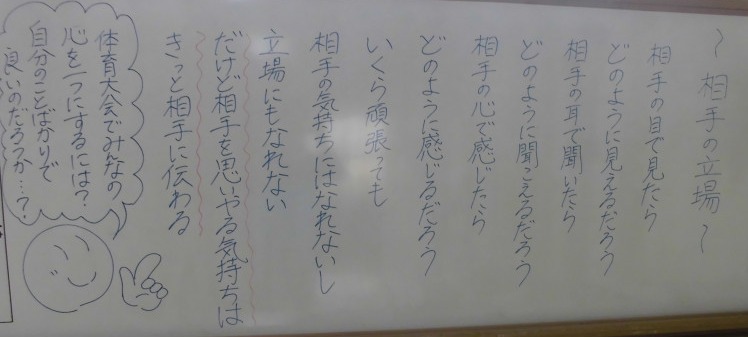 ～相手の立場～
相手の目で見たら
どのように見えるだろう
相手の耳で聞いたら
どのように聞こえるだろう
相手の心で感じたら
どのように感じるだろう
いくら頑張っても
相手の気持ちにはなれないし
立場にもなれない
だけど相手を思いやる気持ちは
きっと相手に伝わる
体育大会でみんなの
心を一つにするには？
自分のことばかりで
良いのだろうか…？